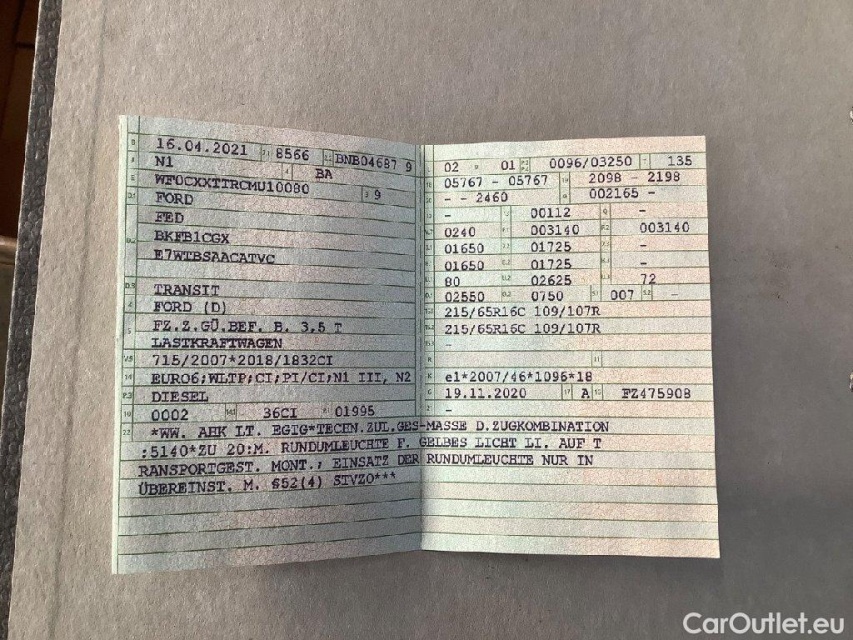 16.04.2021 8566 BNB04687 9
N1 BA
WF0CXXTTRCMU10080 9
FORD
FED
BKFB1CGX
E7WTBSAACATVC
TRANSIT
FORD (D)
FZ.Z.GÜ.BEF. B. 3,5 T
LASTKRAFTWAGEN
715/2007*2018/1832CI
EURO6;WLTP;CI;PI/CI;N1 III, N2
DIESEL
0002 36CI 01995
02 01 0096/03250 135
05767 - 05767 2098 - 2198
- - 2460 002165 -
- 00112 -
0240 003140 003140
01650 01725 -
01650 01725 -
80 02625 72
02550 0750 007 -
215/65R16C 109/107R
215/65R16C 109/107R
-
e1*2007/46*1096*18
19.11.2020 A FZ475908
-
*WW. AHK LT. EGTG*TECHN.ZUL.GES-MASSE D.ZUGKOMBINATION
:5140*ZU 20:M. RUNDUMLEUCHTE F. GELBES LICHT LI. AUF T
RANSPORTGEST. MONT.; EINSATZ DER RUNDUMLEUCHTE NUR IN
ÜBEREINST. M. §52(4) STVZO***
CarOutlet.eu